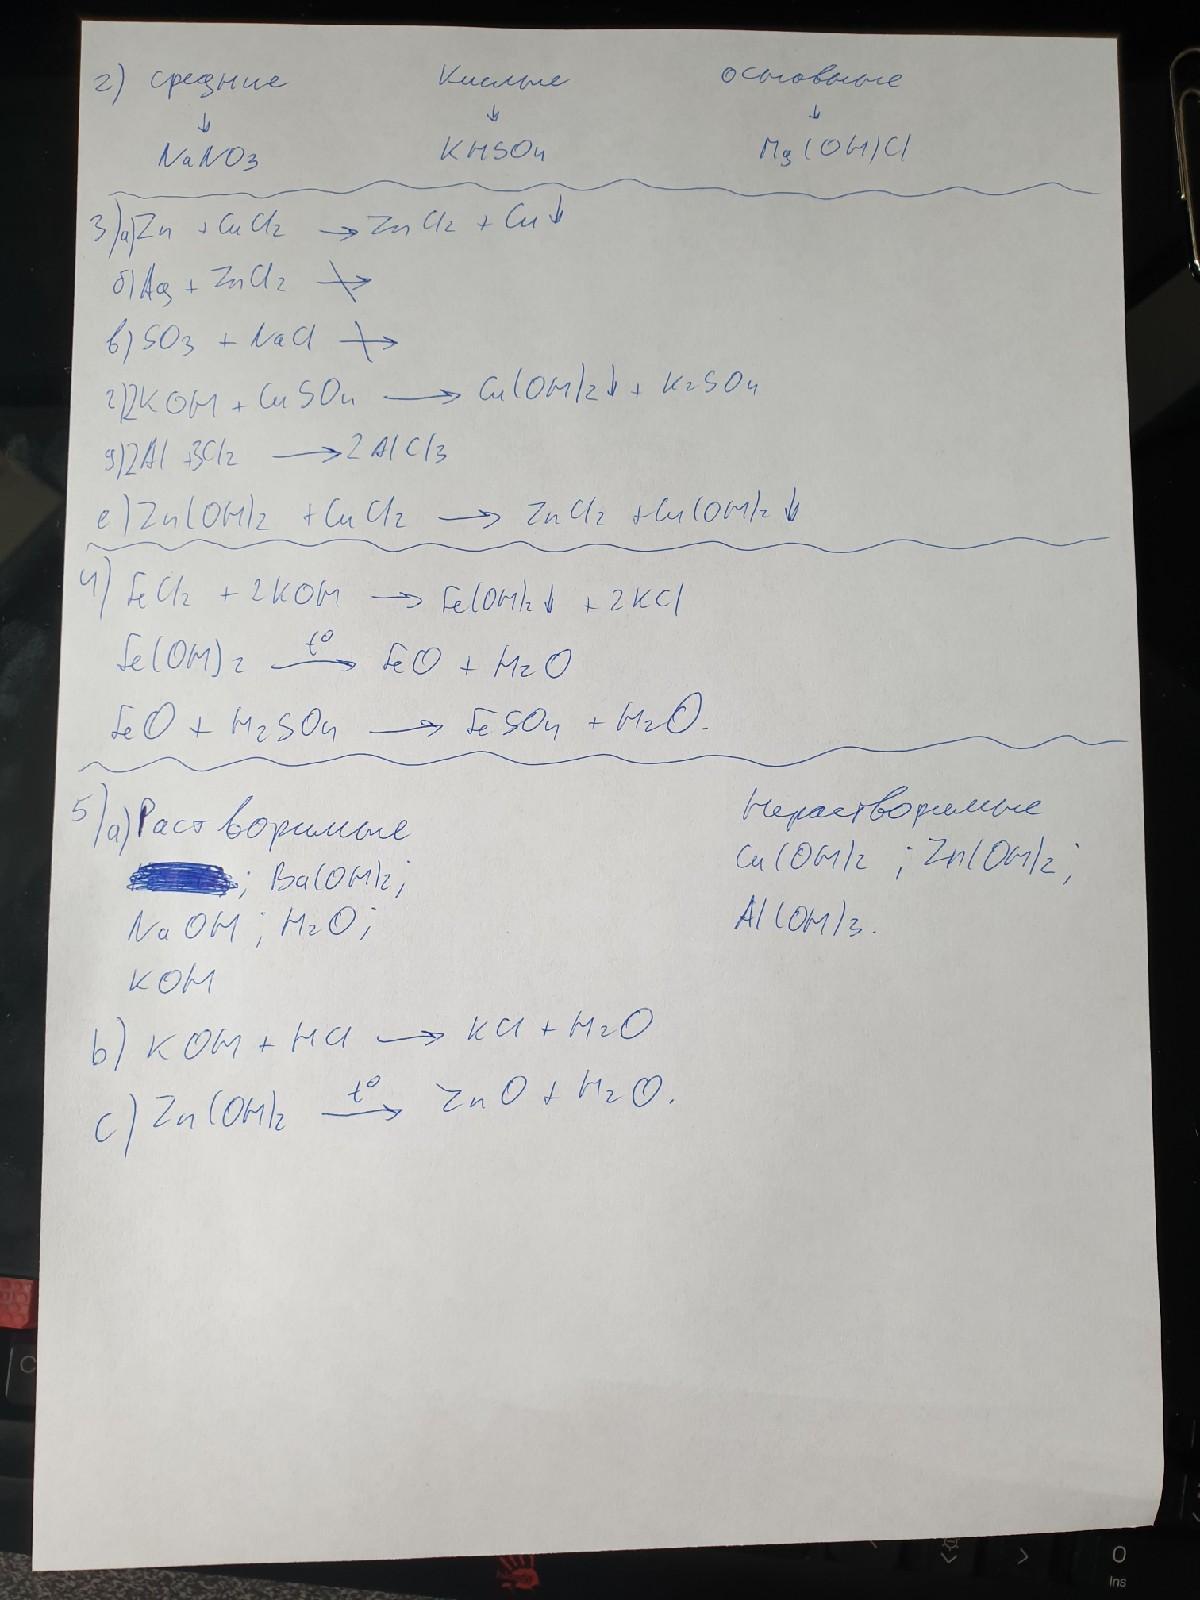 2) средние Кислые основные
↓ ↓ ↓
NaNO3 KHSO4 Mg(OH)Cl
3) а) Zn + CuCl2 → ZnCl2 + Cu↓
б) Ag + ZnCl2 ↛
в) SO3 + NaCl ↛
г) 2KOH + CuSO4 → Cu(OH)2↓ + K2SO4
д) 2Al + 3Cl2 → 2AlCl3
е) Zn(OH)2 + CuCl2 → ZnCl2 + Cu(OH)2↓
4) FeCl2 + 2KOH → Fe(OH)2↓ + 2KCl
Fe(OH)2 t° → FeO + H2O
FeO + H2SO4 → FeSO4 + H2O.
5) a) Растворимые Нерастворимые
; Ba(OH)2; Cu(OH)2 ; Zn(OH)2;
NaOH ; H2O; Al(OH)3.
KOH
b) KOH + HCl → KCl + H2O
c) Zn(OH)2 t° → ZnO + H2O.
O
Ins